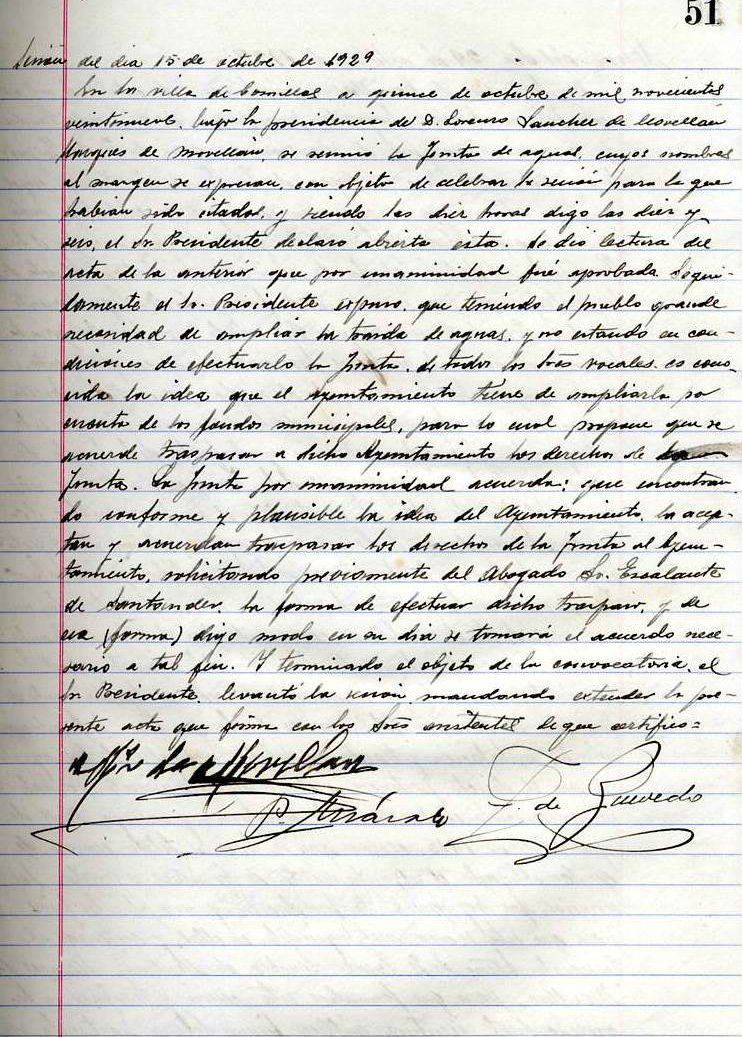 51
Sesión del dia 15 de octubre de 1929
En la villa de Comillas a quince de octubre de mil novecientos
veintinueve, bajo la presidencia de D. Lorenzo Sanchez de Movellan
Marqués de Movellan, se reunió la Junta de aguas, cuyos nombres
al margen se expresan, con objeto de celebrar la sesión para la que
habian sido citados, y siendo las diez horas digo las diez y
seis, el Sr. Presidente declaró abierta ésta. Se dió lectura del
acta de la anterior que por unanimidad fué aprobada. Segui-
damente el Sr. Presidente expuso, que teniendo el pueblo grande
necesidad de ampliar la traida de aguas, y no estando en con-
diciones de efectuarlo la Junta, de todos los Sres vocales es cono-
cida la idea que el ayuntamiento tiene de ampliarla por
cuenta de los fondos municipales, para lo cual propone que se
acuerde traspasar a dicho Ayuntamiento los derechos de
Junta. La Junta por unanimidad acuerda: que encontran-
do conforme y plausible la idea del Ayuntamiento, la acep-
tan y acuerdan traspasar los derechos de la Junta al Ayun-
tamiento, solicitando previamente del Abogado Sr. Escalante
de Santander, la forma de efectuar dicho traspaso, y de
esa (forma) digo modo en su dia se tomará el acuerdo nece-
sario a tal fin. Y terminado el objeto de la convocatoria, el
Sr. Presidente, levantó la sesión, mandando extender la pre-
sente acta que firma con los Sres asistentes de que certifico=
El Mqs de Movellan
F. de Quevedo